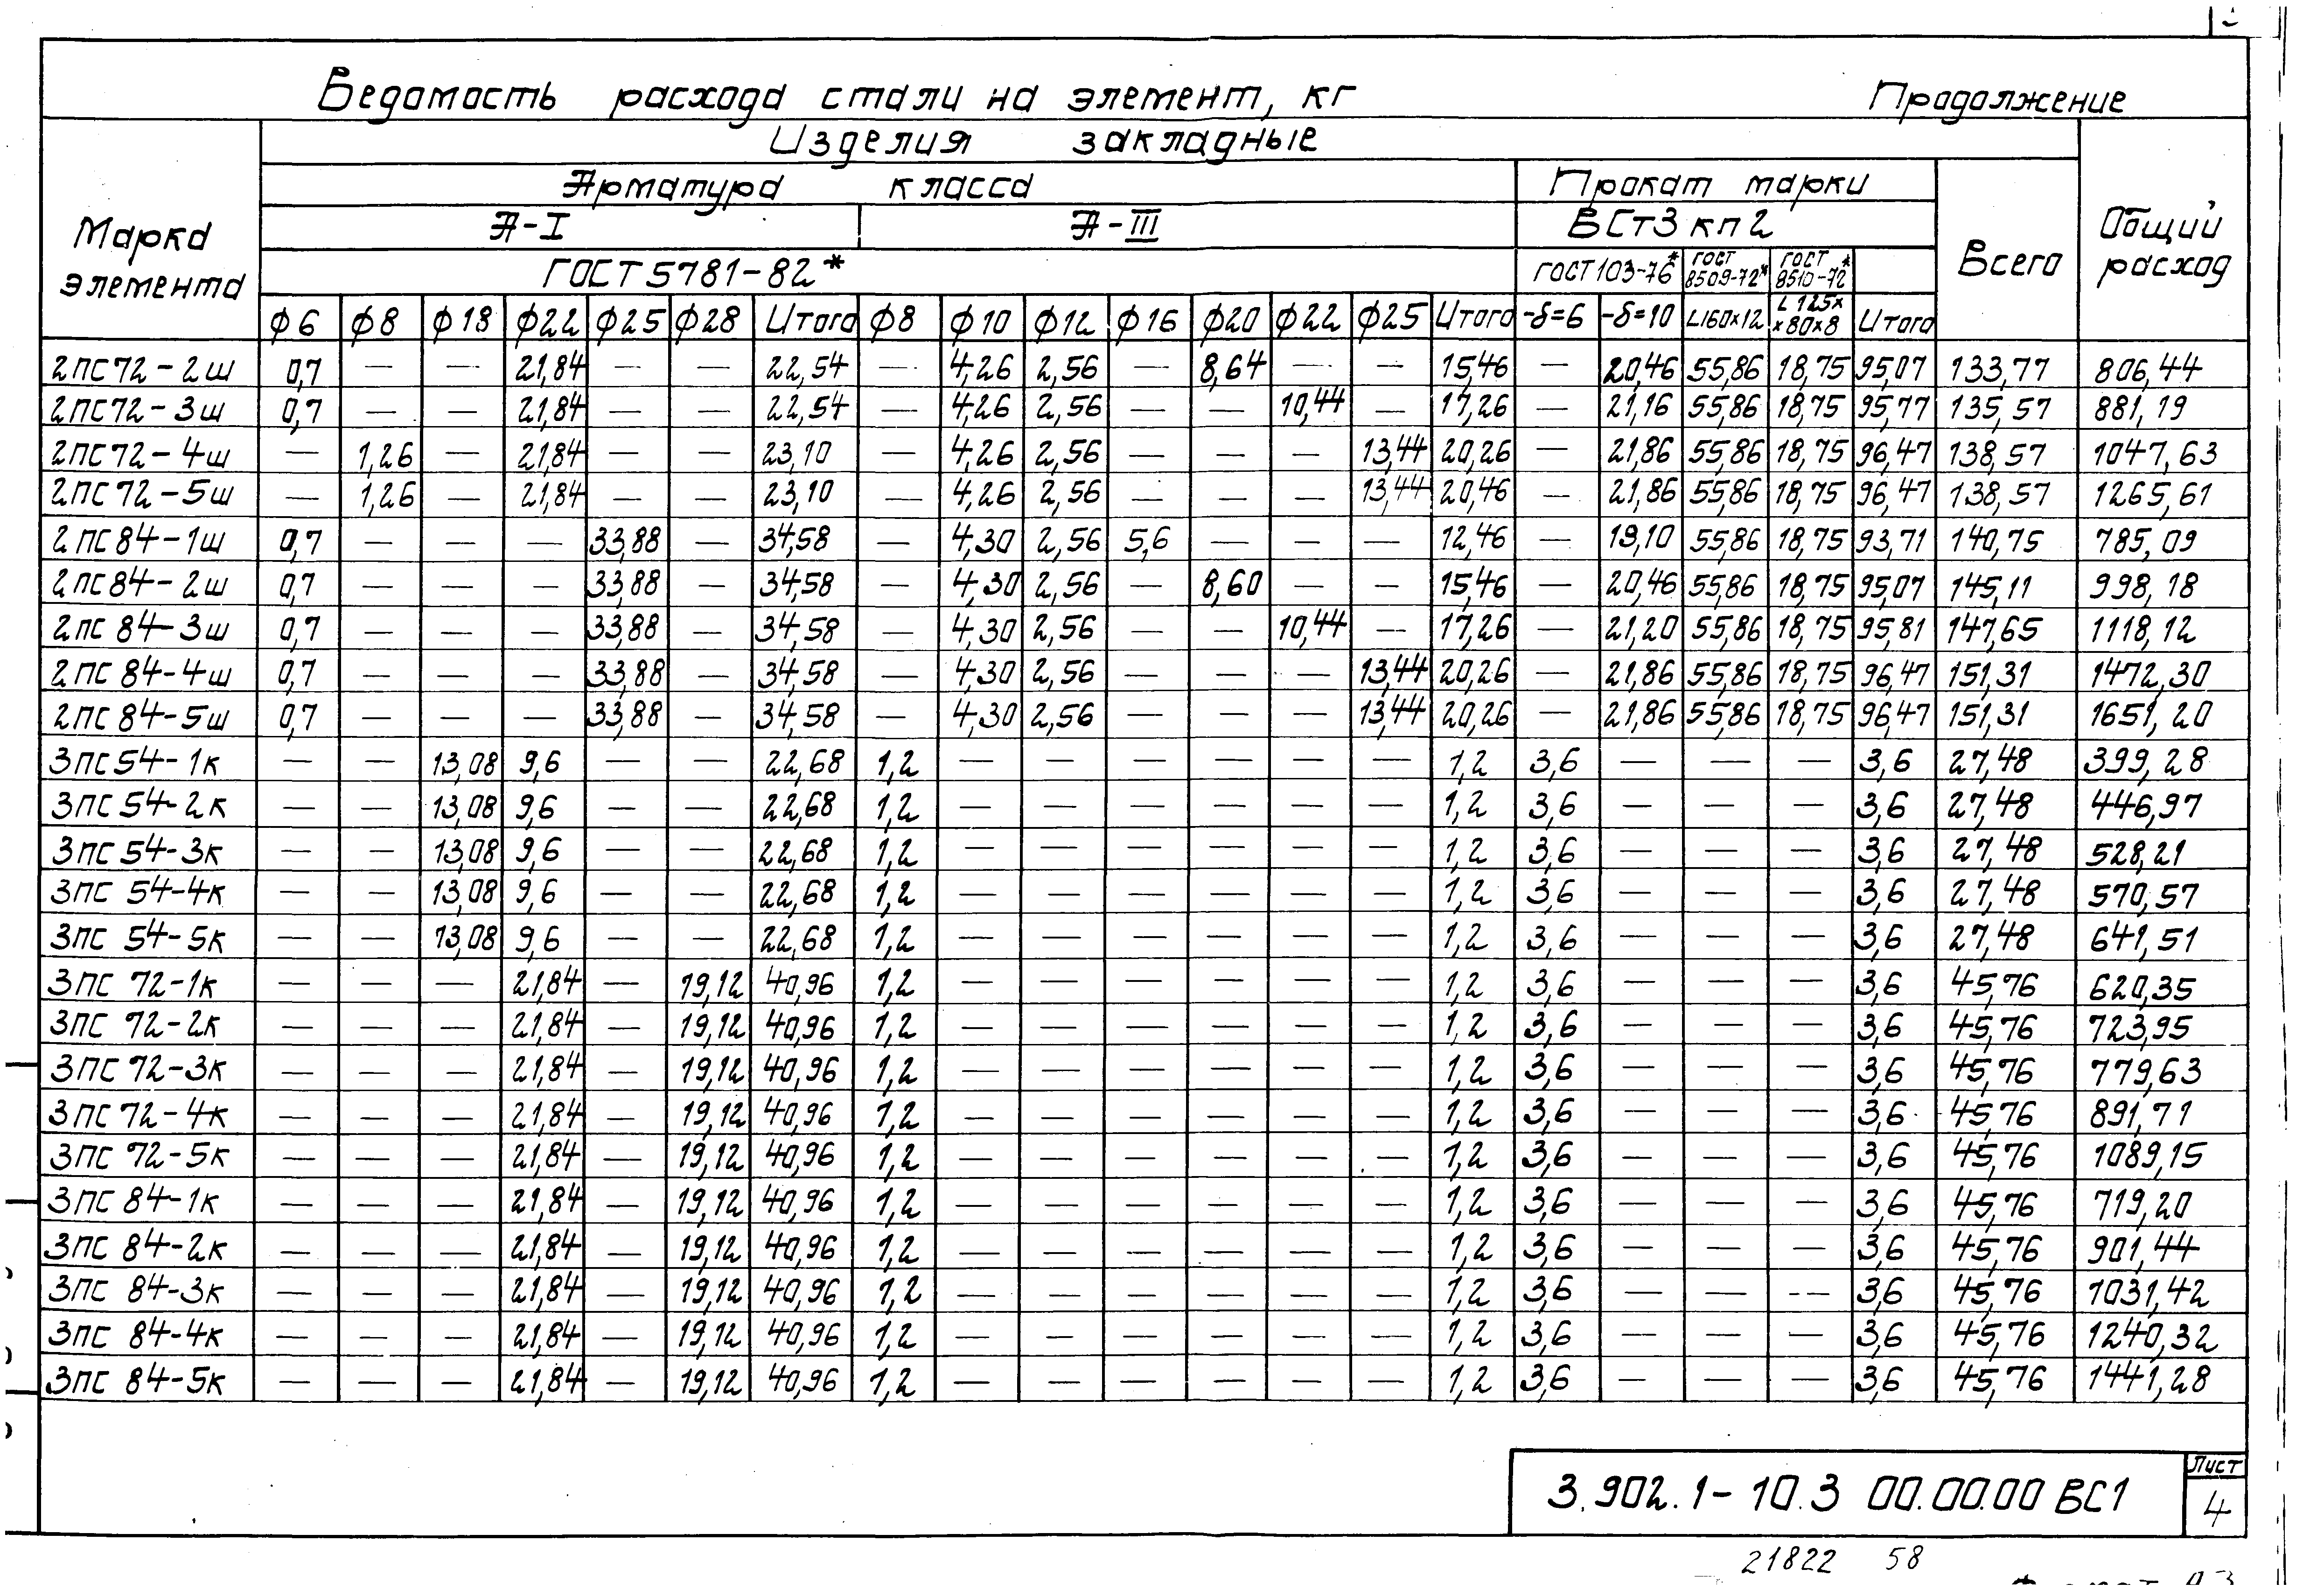 Ведомость расхода стали на элемент, кг Продолжение
Марка элемента Изделия закладные Общий расход
Арматура класса Прокат марки Всего
А-I А-III ВСт3кп2
ГОСТ 5781-82* ГОСТ 103-76* ГОСТ 8509-72* ГОСТ 8510-72*
ф6 ф8 ф18 ф22 ф25 ф28 Итого ф8 ф10 ф12 ф16 ф20 ф22 ф25 Итого -δ=6 -δ=10 L160×12 L125××80×8 Итого
2ПС72-2ш 0,7 — — 21,84 — — 22,54 — 4,26 2,56 — 8,64 — — 15,46 — 20,46 55,86 18,75 95,07 133,77 806,44
2ПС72-3ш 0,7 — — 21,84 — — 22,54 — 4,26 2,56 — — 10,44 — 17,26 — 21,16 55,86 18,75 95,77 135,57 881,19
2ПС72-4ш — 1,26 — 21,84 — — 23,10 — 4,26 2,56 — — — 13,44 20,26 — 21,86 55,86 18,75 96,47 138,57 1047,63
2ПС72-5ш — 1,26 — 21,84 — — 23,10 — 4,26 2,56 — — — 13,44 20,46 — 21,86 55,86 18,75 96,47 138,57 1265,61
2ПС84-1ш 0,7 — — — 33,88 — 34,58 — 4,30 2,56 5,6 — — — 12,46 — 19,10 55,86 18,75 93,71 140,75 785,09
2ПС84-2ш 0,7 — — — 33,88 — 34,58 — 4,30 2,56 — 8,60 — — 15,46 — 20,46 55,86 18,75 95,07 145,11 998,18
2ПС84-3ш 0,7 — — — 33,88 — 34,58 — 4,30 2,56 — — 10,44 — 17,26 — 21,20 55,86 18,75 95,81 147,65 1118,12
2ПС84-4ш 0,7 — — — 33,88 — 34,58 — 4,30 2,56 — — — 13,44 20,26 — 21,86 55,86 18,75 96,47 151,31 1472,30
2ПС84-5ш 0,7 — — — 33,88 — 34,58 — 4,30 2,56 — — — 13,44 20,26 — 21,86 55,86 18,75 96,47 151,31 1651,20
3ПС54-1к — — 13,08 9,6 — — 22,68 1,2 — — — — — — 1,2 3,6 — — — 3,6 27,48 399,28
3ПС54-2к — — 13,08 9,6 — — 22,68 1,2 — — — — — — 1,2 3,6 — — — 3,6 27,48 446,97
3ПС54-3к — — 13,08 9,6 — — 22,68 1,2 — — — — — — 1,2 3,6 — — — 3,6 27,48 528,21
3ПС 54-4к — — 13,08 9,6 — — 22,68 1,2 — — — — — — 1,2 3,6 — — — 3,6 27,48 570,57
3ПС 54-5к — — 13,08 9,6 — — 22,68 1,2 — — — — — — 1,2 3,6 — — — 3,6 27,48 641,51
3ПС 72-1к — — — 21,84 — 19,12 40,96 1,2 — — — — — — 1,2 3,6 — — — 3,6 45,76 620,35
3ПС 72-2к — — — 21,84 — 19,12 40,96 1,2 — — — — — — 1,2 3,6 — — — 3,6 45,76 723,95
3ПС 72-3к — — — 21,84 — 19,12 40,96 1,2 — — — — — — 1,2 3,6 — — — 3,6 45,76 779,63
3ПС 72-4к — — — 21,84 — 19,12 40,96 1,2 — — — — — — 1,2 3,6 — — — 3,6 45,76 891,71
3ПС 72-5к — — — 21,84 — 19,12 40,96 1,2 — — — — — — 1,2 3,6 — — — 3,6 45,76 1089,15
3ПС 84-1к — — — 21,84 — 19,12 40,96 1,2 — — — — — — 1,2 3,6 — — — 3,6 45,76 719,20
3ПС 84-2к — — — 21,84 — 19,12 40,96 1,2 — — — — — — 1,2 3,6 — — — 3,6 45,76 901,44
3ПС 84-3к — — — 21,84 — 19,12 40,96 1,2 — — — — — — 1,2 3,6 — — — 3,6 45,76 1031,42
3ПС 84-4к — — — 21,84 — 19,12 40,96 1,2 — — — — — — 1,2 3,6 — — — 3,6 45,76 1240,32
3ПС 84-5к — — — 21,84 — 19,12 40,96 1,2 — — — — — — 1,2 3,6 — — — 3,6 45,76 1441,28
3.902.1-10.3 00.00.00 ВС1 Лист 4
21822 58